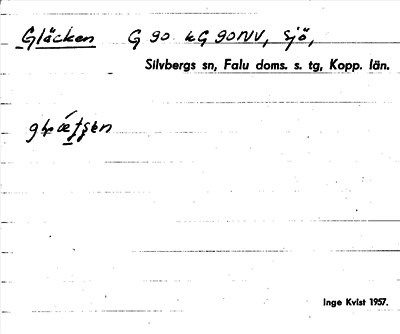 Gläcken G 90 kG 90NV, Sjö,
Silvbergs sn, Falu doms. s. tg, Kopp. län.
Inge Kvist 1957.